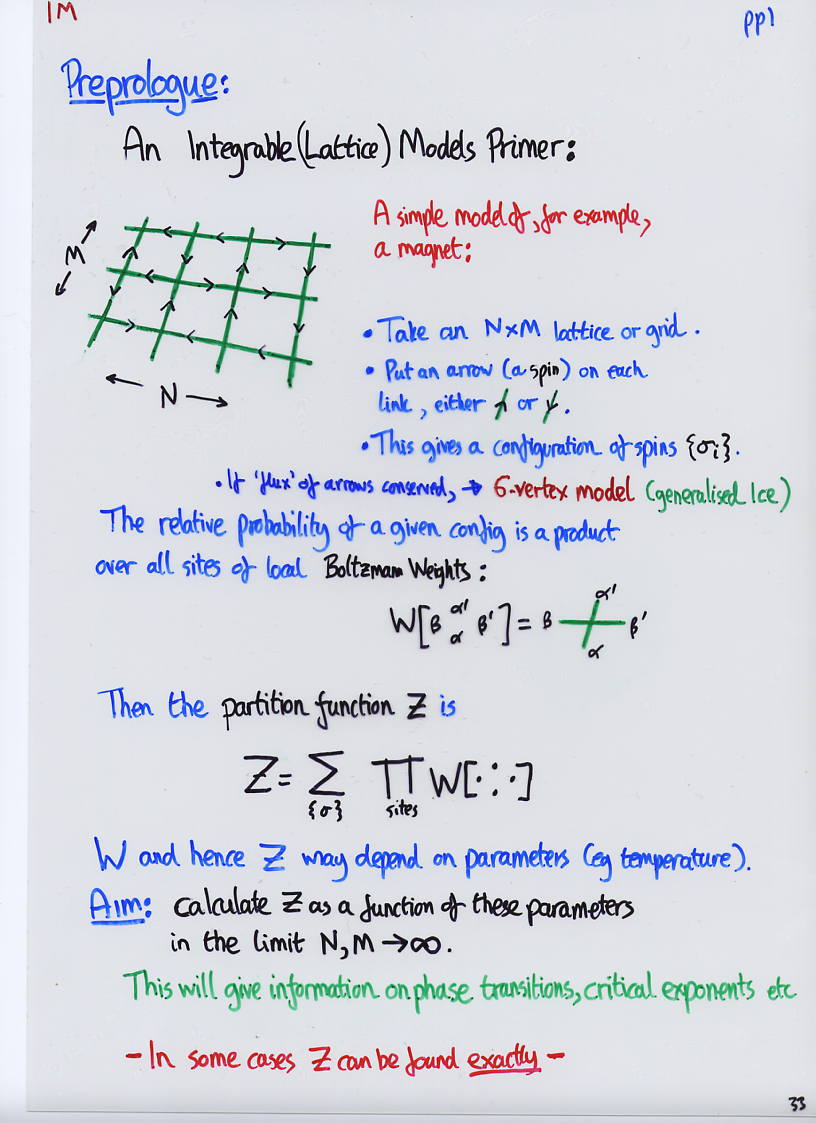 IM
pp1
Preprologue:
An Integrable (Lattice) Models Primer:
A simple model of, for example,
a magnet:
M
N
• Take an N×M lattice or grid.
• Put an arrow (a spin) on each
link, either or .
• This gives a configuration of spins {σi}.
• If 'flux' of arrows conserved, → 6-vertex model (generalised Ice)
The relative probability of a given config is a product
over all sites of local Boltzmann Weights:
W[β α' α β'] = β α' α β'
Then the partition function Z is
Z = Σ {σ} ∏ sites W[∙ : ∙]
W and hence Z may depend on parameters (eg temperature).
Aim: calculate Z as a function of these parameters
in the limit N, M → ∞.
This will give information on phase transitions, critical exponents etc
- In some cases Z can be found exactly -
33